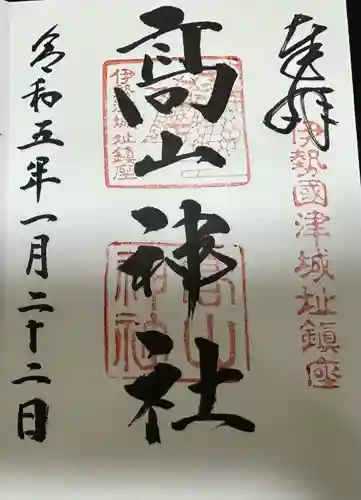 奉拝
伊勢國津城址鎮座
髙山神社
伊勢津城址鎮座
高山神社
令和五年一月二十二日